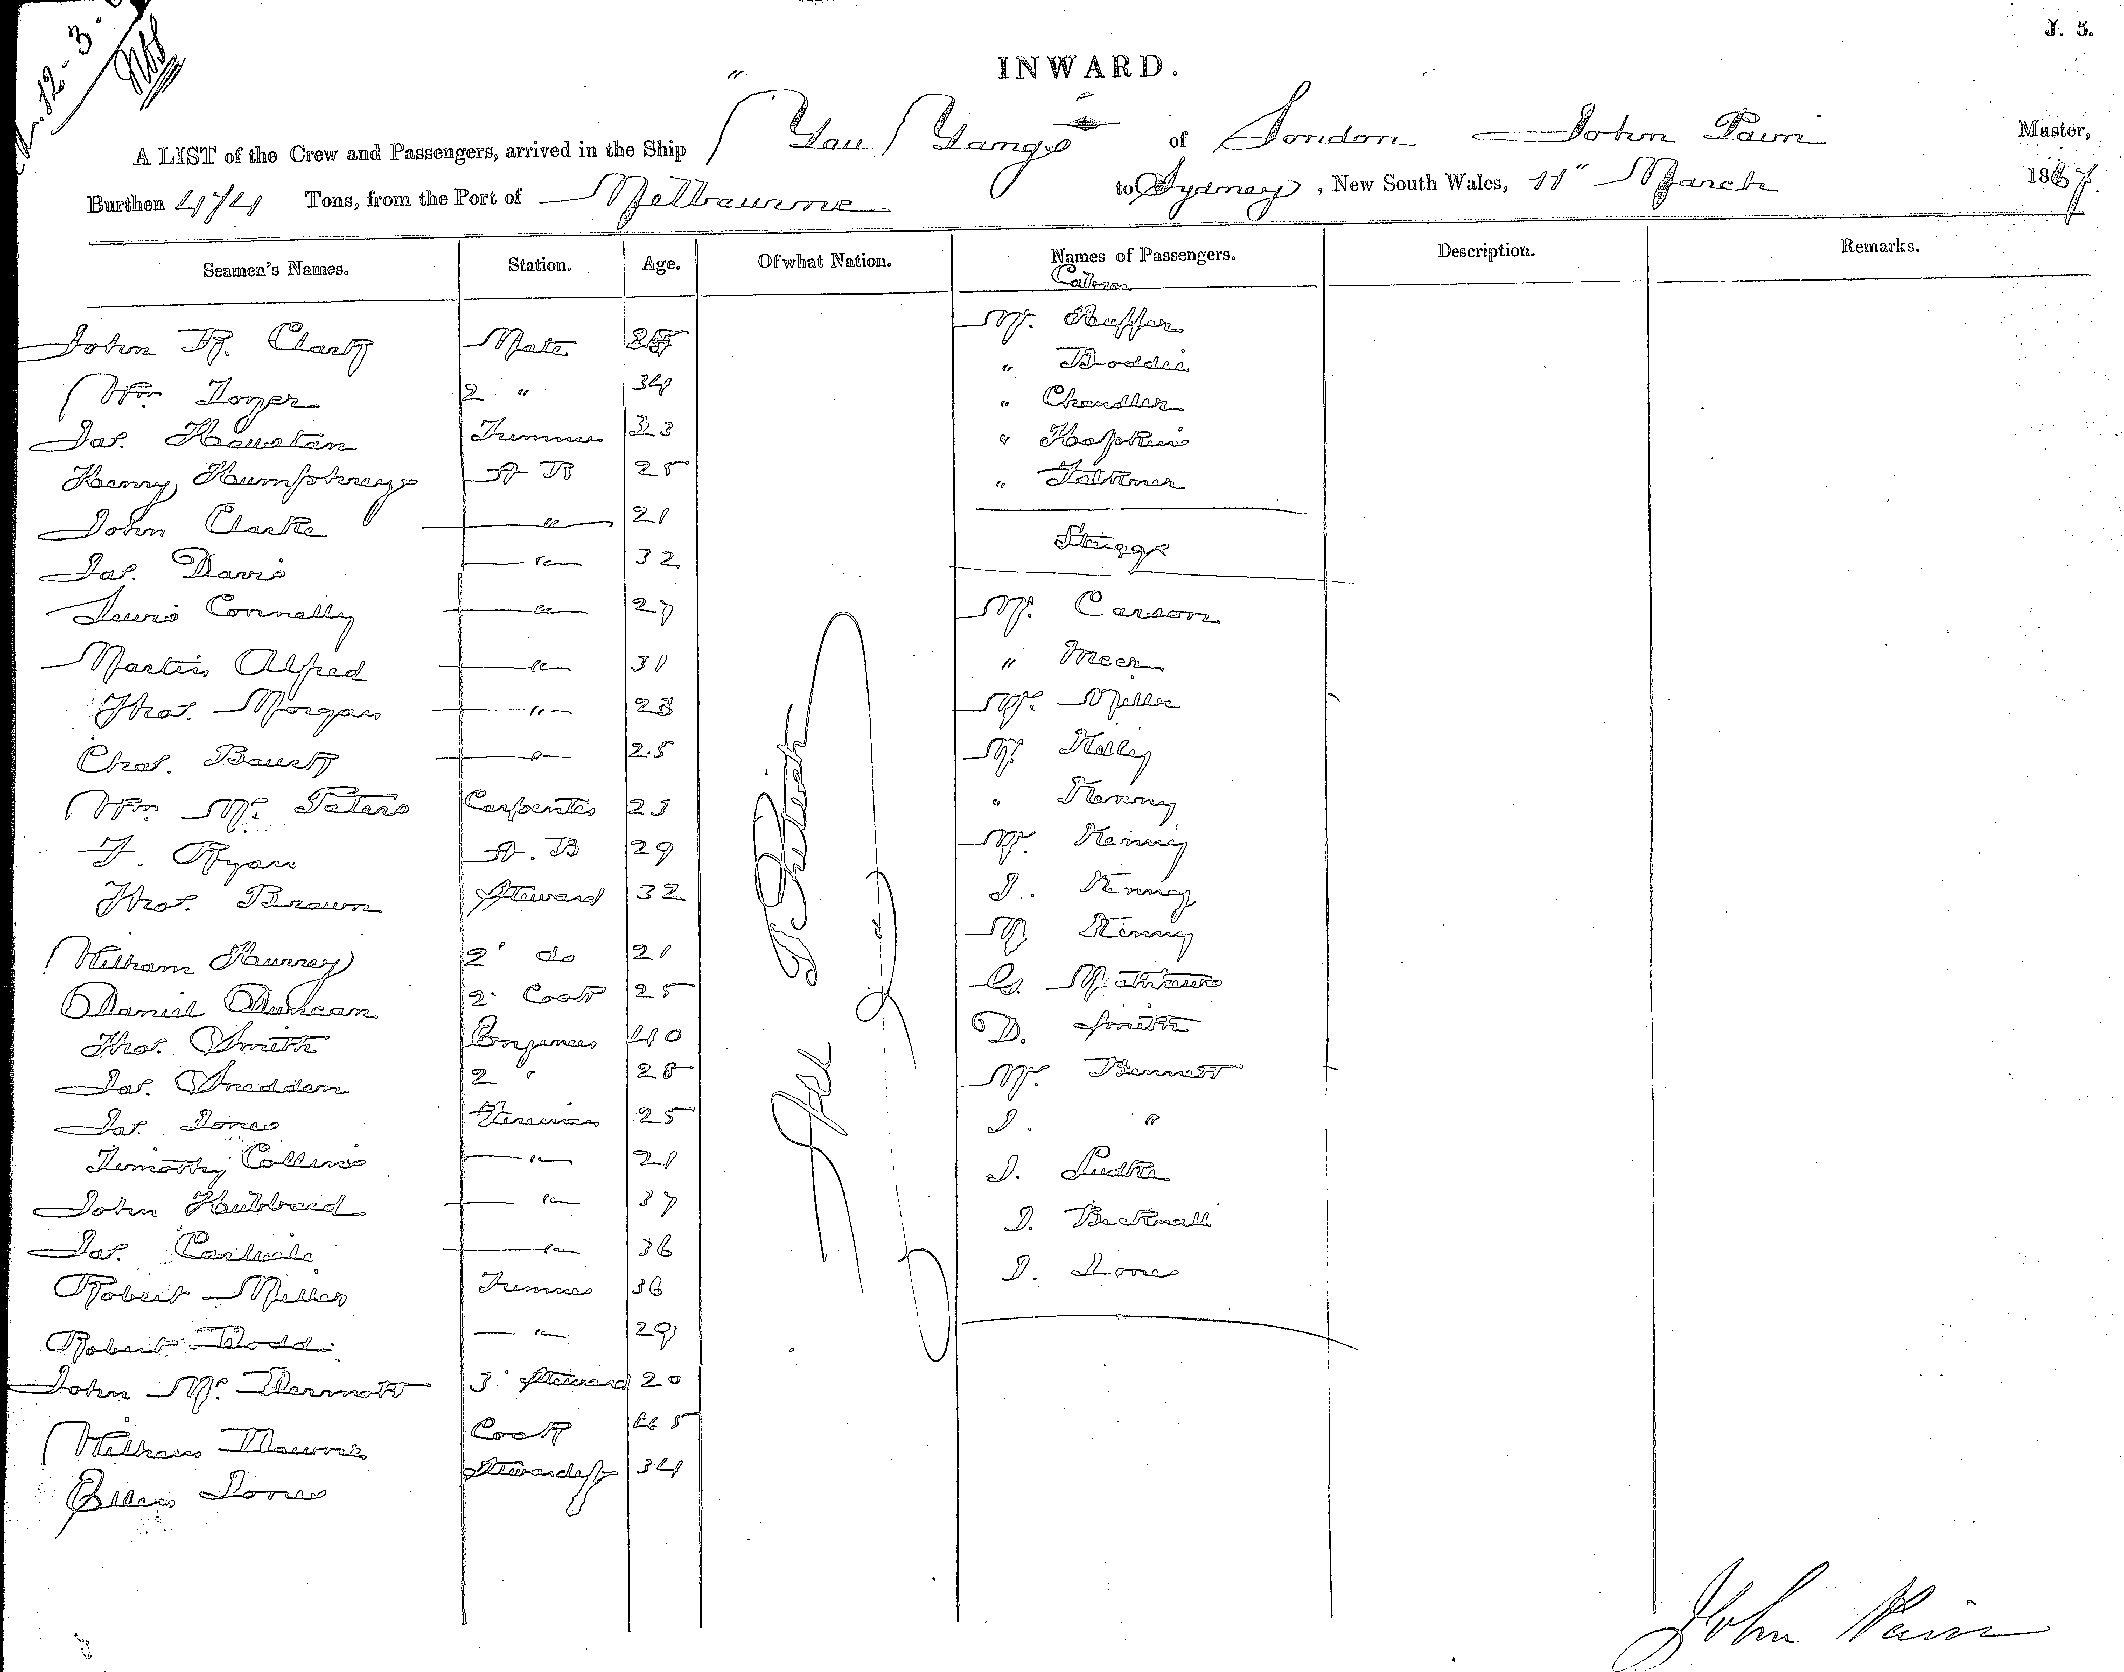 J. 5.
12-3-6
INWARD.
A LIST of the Crew and Passengers, arrived in the Ship "You Yangs of London John Pain Master,
Burthen 474 Tons, from the Port of Melbourne to Sydney, New South Wales, 11" March 1867
Seamen's Names. Station. Age. Of what Nation. Names of Passengers. Description. Remarks.
John R. Clark Mate
Wm 2 " 34
Jas. Houstan Trimmer 33
Henry Humphreys A B 25
John Clarke " 21
Jas. Davis " 32
Lewis Connelly " 27
Martin Alfred " 31
Thos. Morgan " 23
Chas. " 25
Wm Mc Peters Carpenter 25
J. Ryan A. B 29
Thos. Brown Steward 32
William Hurrey 2" do 21
Daniel Duncan 2" Cook 25
Thos. Smith 40
Jas. Snedden 2 " 28
Jas. Jones Fireman 25
Timothy Collins " 21
John Hubbard " 37
Jas. Carlisle " 36
Robert Miller Trimmer 36
Robert Dodd " 29
John Mc Dermott 3" Steward 20
William Cook
Ellen Jones Stewardess 34
All British
Cabin
Mr.
" Boddie
" Chandler
" Hopkins
" Falkiner
Steerage
Mr. Carson
" Meer
Mrs. Miller
Mr. Kelley
" Kenny
Mr. Kenny
J. Kenny
M Kenny
G. Mathews
D. Smith
Mr. Bennett
J. "
J.
J. Bicknall
J. Jones
John Pain